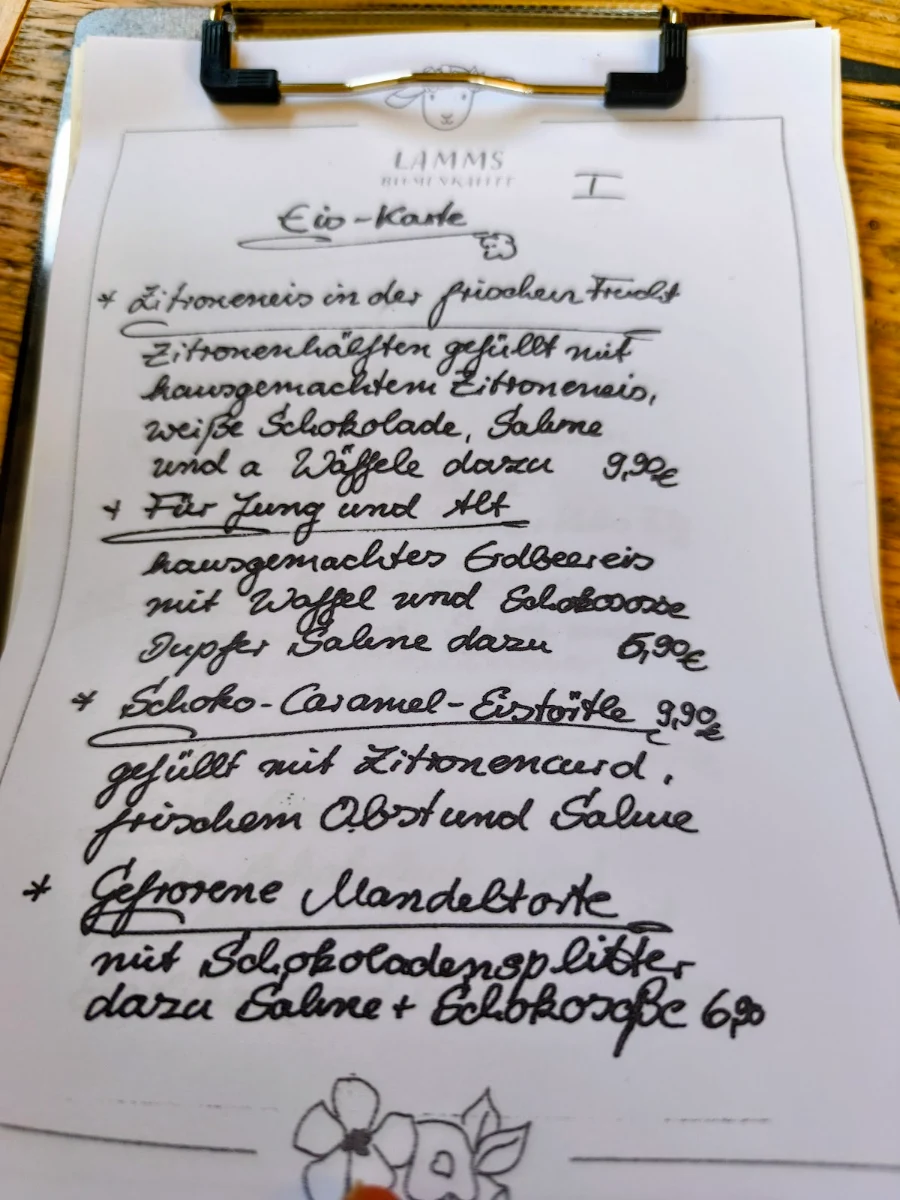 LAMMS
I
Eis-Karte
* Zitroneneis in der frischen Frucht
Zitronenhälften gefüllt mit
hausgemachtem Zitroneneis,
weiße Schokolade, Sahne
und a Wäffele dazu 9,90€
* Für Jung und Alt
hausgemachtes Erdbeereis
mit Waffel und
Dupfer Sahne dazu 6,90€
* Schoko-Caramel-Eistörtle 9,90€
gefüllt mit Zitronencurd,
frischem Obst und Sahne
* Gefrorene Mandeltorte
mit Schokoladensplitter
dazu Sahne + Schokosoße 6,90